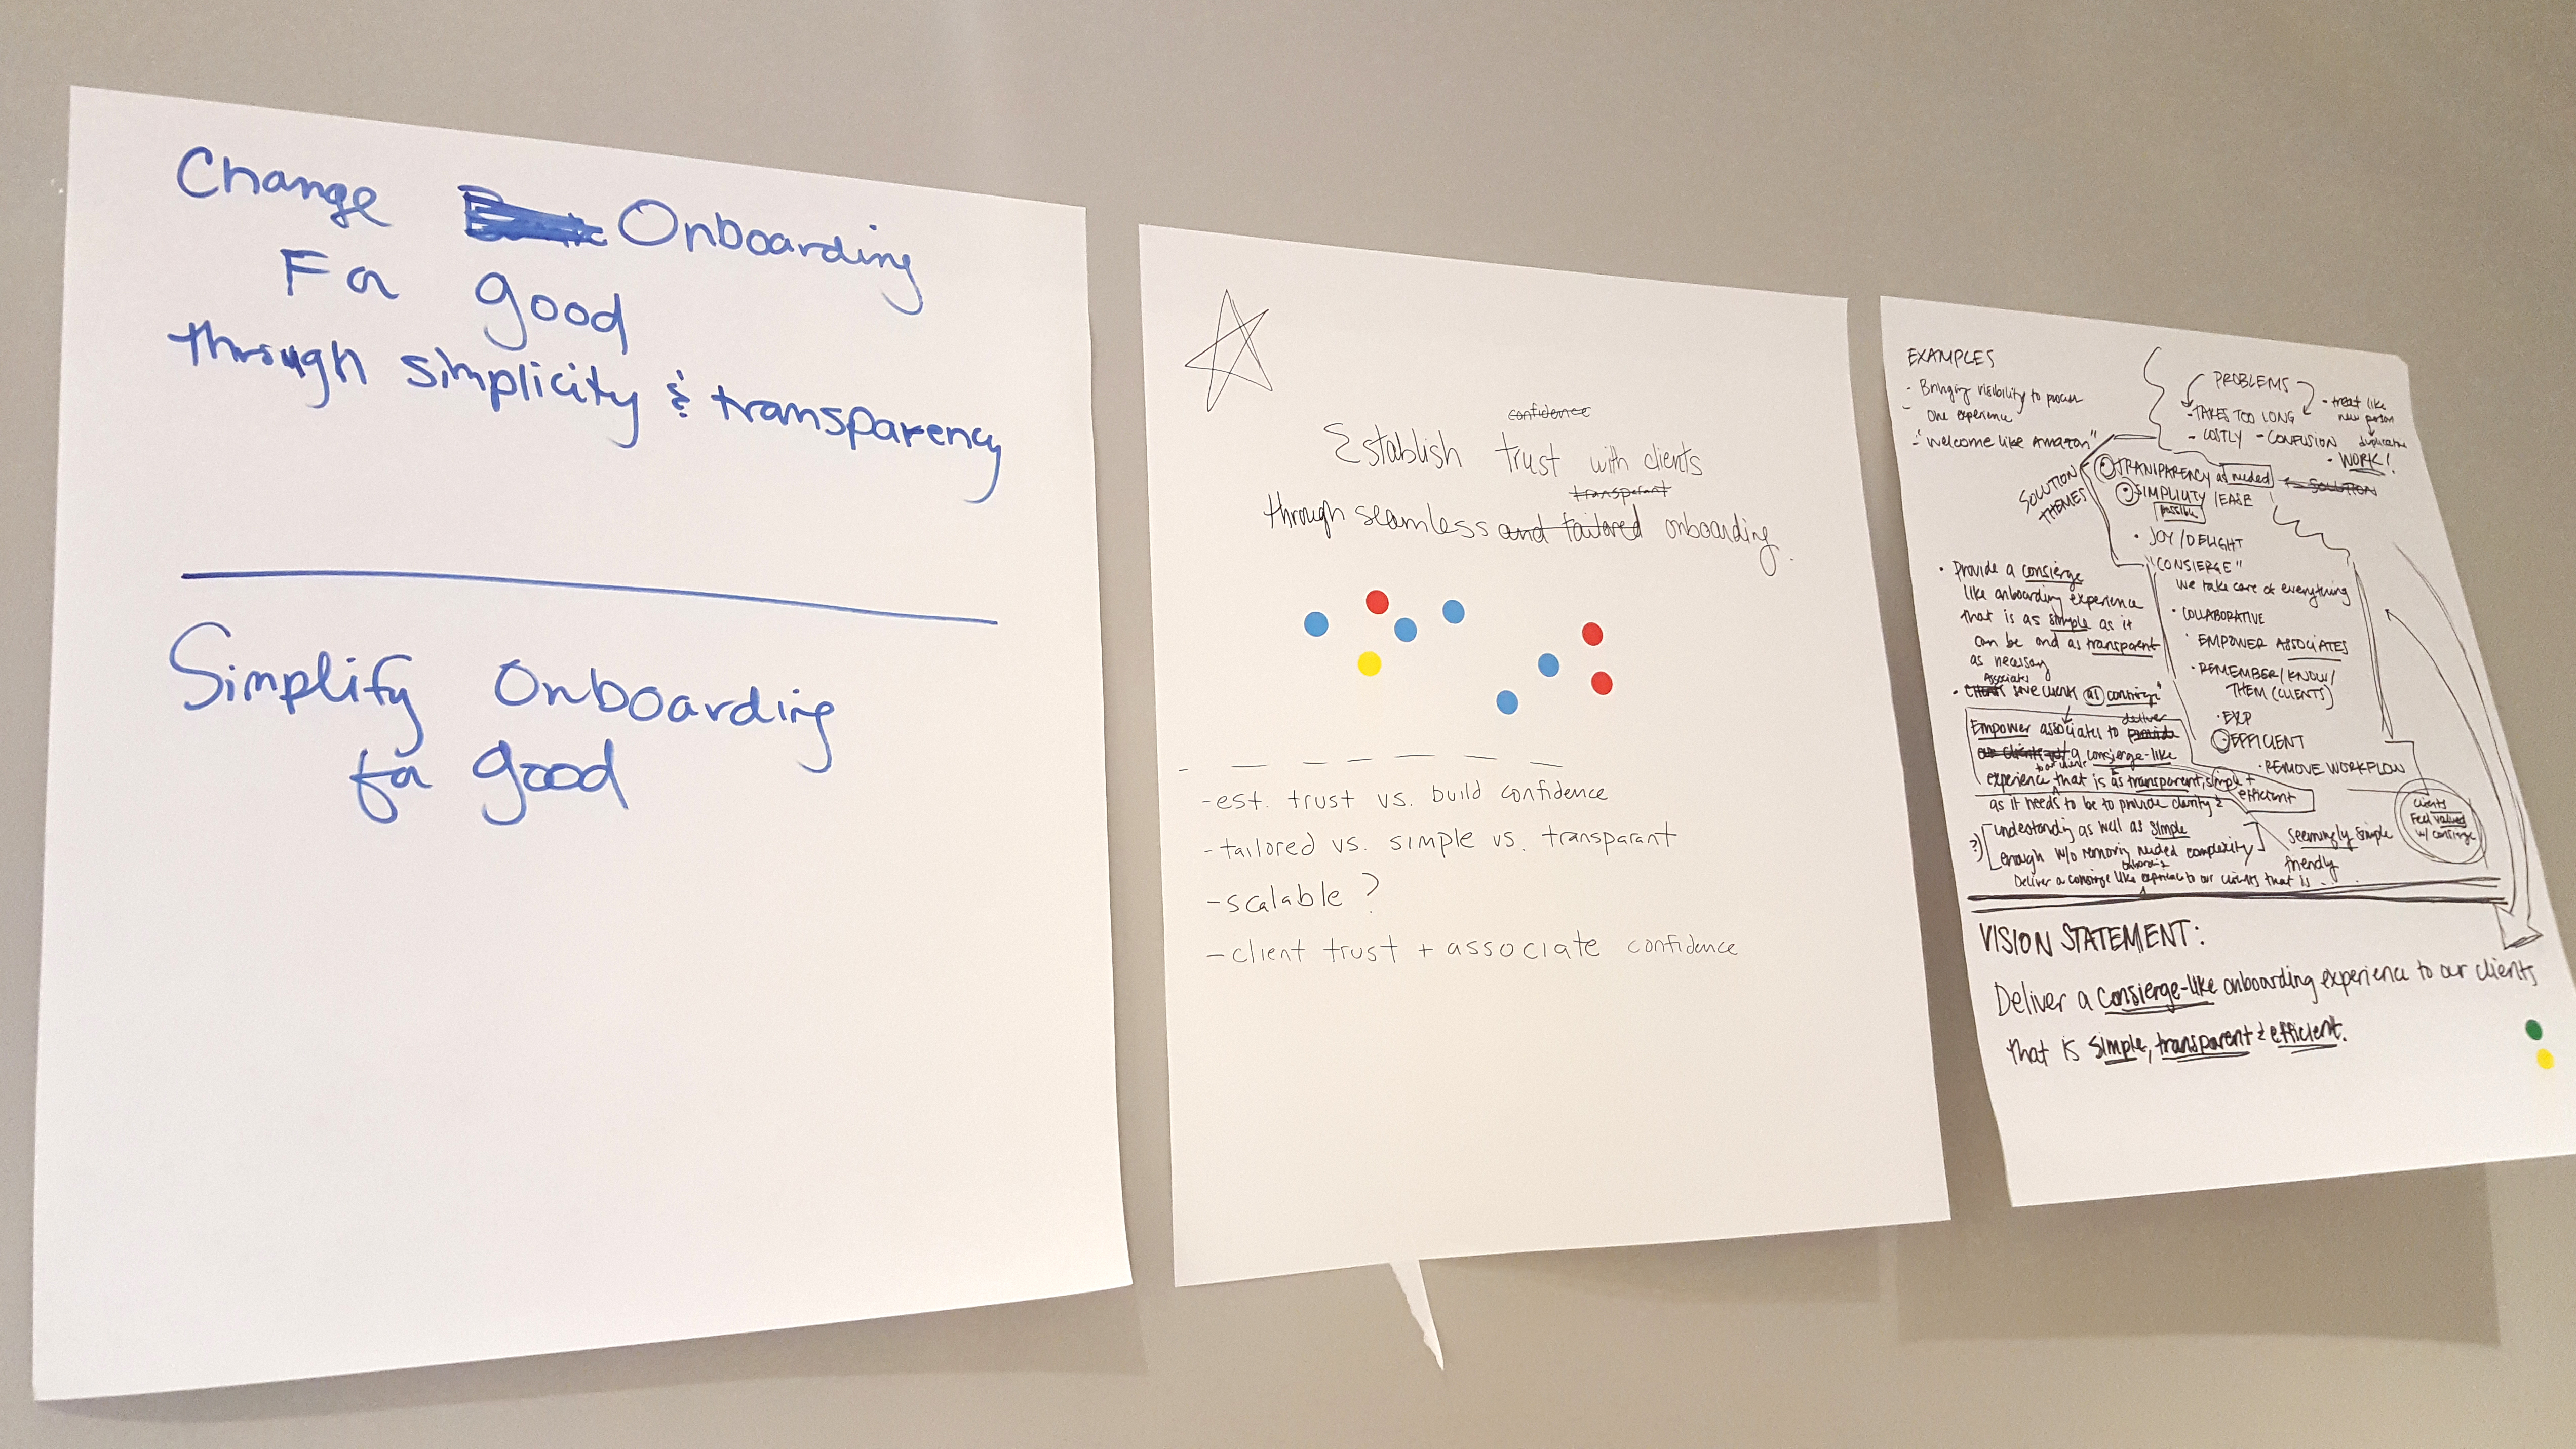 Change Onboarding
For good
through simplicity & transparency
Simplify Onboarding
for good
confidence
Establish trust with clients
transparent
through seamless and tailored onboarding.
-est. trust vs. build confidence
-tailored vs. simple vs. transparant
-scalable?
-client trust + associate confidence
EXAMPLES
- Bringing visibility to process
- One experience
- "Welcome like Amazon"
PROBLEMS
-TAKES TOO LONG
- COSTLY - CONFUSION
- treat like
new person
duplicative
- WORK!
SOLUTION
THEMES
TRANSPARENCY as needed
SOLUTION
SIMPLICITY /EASE
possible
• JOY/DELIGHT
"CONSIERGE"
We take care of everything
• COLLABORATIVE
• EMPOWER ASSOCIATES
• REMEMBER/KNOW/
THEM (CLIENTS)
• EXP
EFFICIENT
• REMOVE WORKFLOW
• Provide a consierge
like onboarding experience
that is as simple as it
can be and as transparent
as necessary
Associates
• Clients serve clients as consierge"
deliver
Empower associates to provide
our clients a consierge-like
to our clients
experience that is as transparent, simple +
efficient
as it needs to be to provide clarity &
?) [understanding as well as simple
enough w/o removing needed complexity]
Seemingly simple
friendly
onboarding
Deliver a consierge like experience to our clients that is...
clients
Feel valued
w/ consierge
VISION STATEMENT:
Deliver a consierge-like onboarding experience to our clients
that is simple, transparent & efficient.